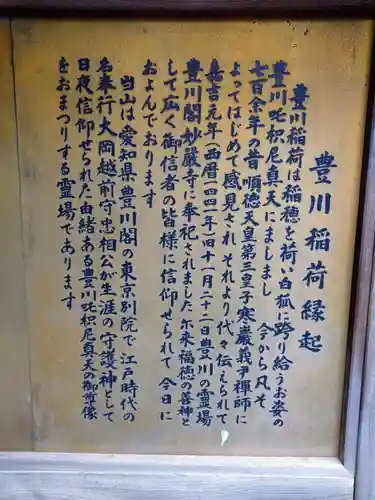 豊川稲荷縁起
豊川稲荷は稲穂を荷い白狐に跨り給うお姿の
豊川吒枳尼真天にましまし 今から凡そ
七百余年の昔 順徳天皇第三皇子寒巌義尹禅師に
よってはじめて感見され それより代々伝えられて
嘉吉元年(西暦一四四一年)四十一月二十二日豊川の霊場
豊川閣妙厳寺に奉祀されました 尓来福徳の善神と
して広く御信者の皆様に信仰せられて 今日に
およんでおります
当山は愛知県豊川閣の東京別院で 江戸時代の
名奉行大岡越前守忠相公が生涯の(守護神)として
日夜信仰せられた由緒ある豊川吒枳尼真天の御尊像
をおまつりする霊場であります